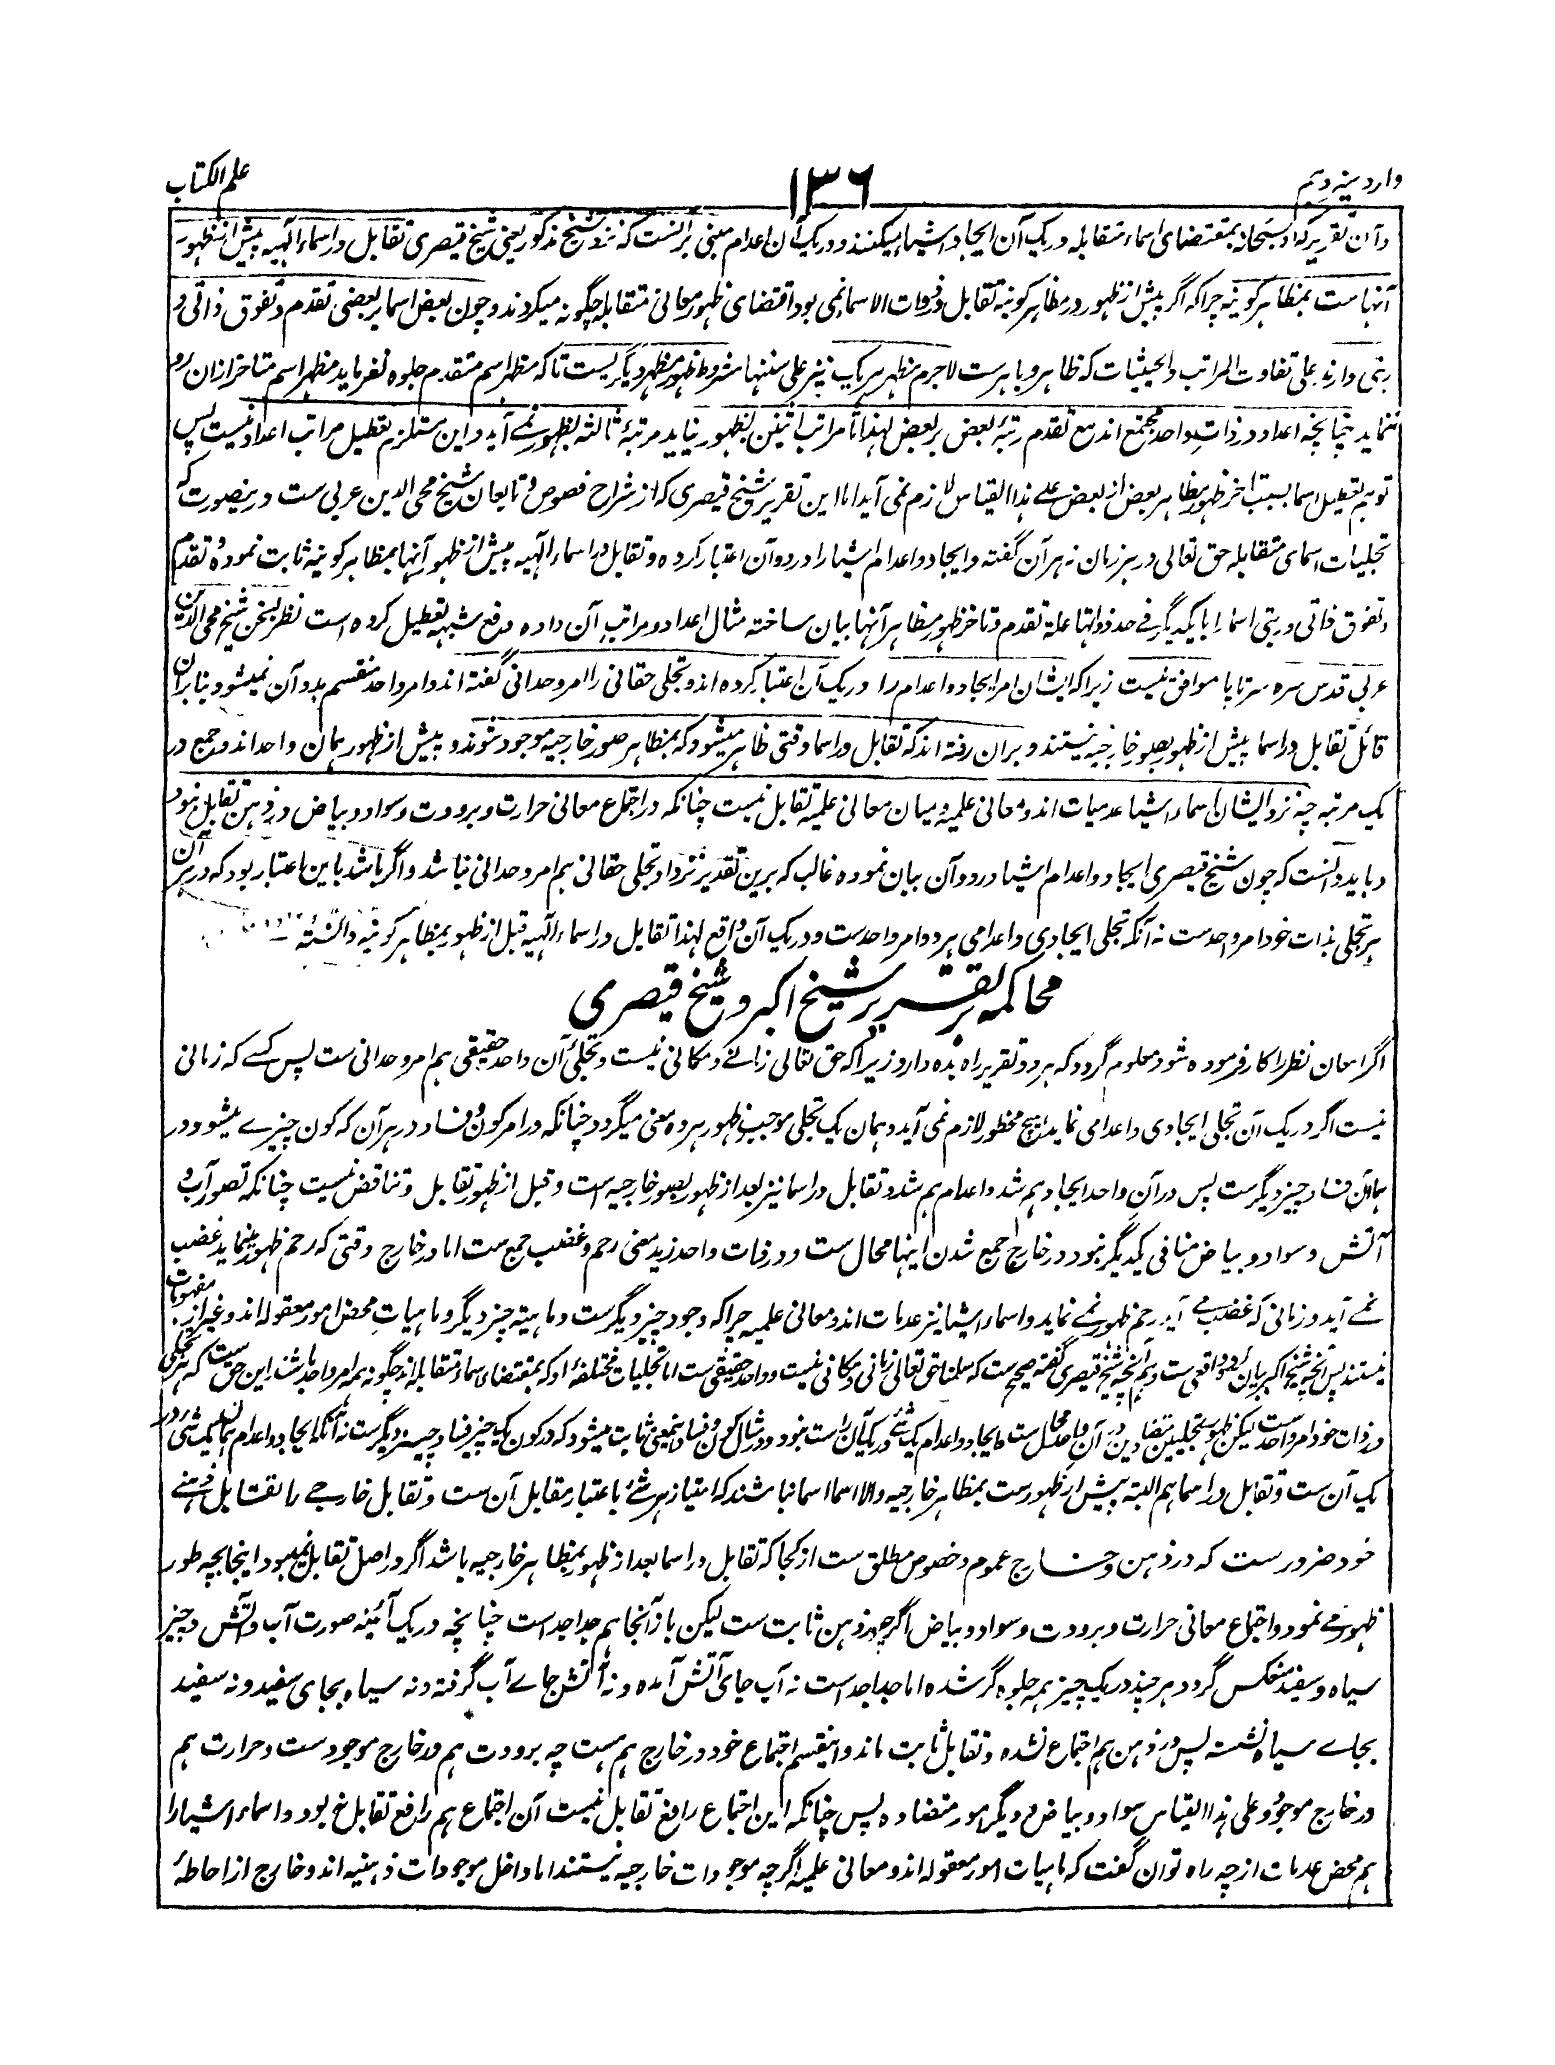 وارد سیزدهم
۱۳۶
علم الکتاب
و آن تقریر که او سبحانه بمقتضای اسماء متقابله در یک آن ایجاد اشیا میکند و در یک آن اعدام مبنی بر آنست که نزد شیخ مذکور یعنی شیخ قیصری تقابل در اسماء الٰهیه پیش از ظهور
آنهاست بمظاهر کونیه چرا که اگر پیش از ظهور در مظاهر کونیه تقابل در ذوات الاسما نمی بود اقتضای ظهور معانی متقابله چگونه میکردند و چون بعض اسما بر بعضی تقدم و تفوق ذاتی و
رتبی دارند علی تفاوت المراتب و الحیثیات که ظاهر و باهرست لاجرم مظهر هر یک نیز علی سننها مشروط ظهور مظهر دیگریست تا که مظهر اسم متقدم جلوه نفرماید مظهر اسم متاخر ازان رو
ننماید چنانچه اعداد در ذات واحد مجتمع اند مع تقدم رتبهٔ بعض بر بعض لهذا تا مراتب اثنین بظهور نیاید مرتبهٔ ثالثه بظهور نمے آید و این مستلزم تعطیل مراتب اعداد نیست پس
توهم تعطیل اسما بسبب تاخر ظهور مظاهر بعض از بعض علے هذا القیاس لازم نمی آید اما این تقریر شیخ قیصری که از شراح فصوص و تابعان شیخ محی الدین عربی ست درینصورت که
تجلیات اسمای متقابله حق تعالی در هر زمان نه هر آن گفته و ایجاد و اعدام اشیا را در دو آن اعتبار کرده و تقابل در اسماء الٰهیه پیش از ظهور آنها بمظاهر کونیه ثابت نموده و تقدم
و تفوق ذاتی و رتبی اسما را با یکدیگر فی حد ذواتها علة تقدم و تاخر ظهور مظاهر آنها بیان ساخته مثال اعداد و مراتب آن داده و رفع شبهه تعطیل کرده است نظر بسخن شیخ محی الدین
عربی قدس سره سرتاپا موافق نیست زیرا که ایشان امر ایجاد و اعدام را در یک آن اعتبار کرده اند و تجلی حقانی را امر وحدانی گفته اند و امر واحد منقسم بدو آن نمیشود بنابران
قائل تقابل در اسما پیش از ظهور بصور خارجیه نیستند و بران رفته اند که تقابل در اسما وقتی ظاهر میشود که بمظاهر صور خارجیه موجود شوند و پیش از ظهور همان واحد اند و جمع در
یک مرتبه چه نزد ایشان اسماء اشیا عدمیات اند و معانی علمیه و میان معانی علمیة تقابل نیست چنانکه در اجتماع معانی حرارت و برودت و سواد و بیاض در ذهن تقابل نبود
و باید دانست که چون شیخ قیصری ایجاد و اعدام اشیا در دو آن بیان نموده غالب که برین تقدیر نزد او تجلی حقانی هم امر وحدانی نباشد و اگر باشد باین اعتبار بود که در هر آن
هر تجلی بذات خود امر واحدست نه آنکه تجلی ایجادی و اعدامی هر دو امر واحدست و در یک آن واقع لهذا تقابل در اسماء الٰهیه قبل از ظهور بمظاهر کونیه دانسته
محاکمه بر تقریر شیخ اکبر و شیخ قیصری
اگر امعان نظر را کار فرموده شود معلوم گردد که هر دو تقریر راه بده دارد زیرا که حق تعالی زمانے و مکانی نیست و تجلی آن واحد حقیقی هم امر وحدانی ست پس کسے که زمانی
نیست اگر در یک آن تجلی ایجادی و اعدامی نماید هیچ محظور لازم نمی آید و همان یک تجلی موجب ظهور هر دو معنی میگردد چنانکه در امر کون و فساد در هر آن که کون چیزے میشود در
همان آن فساد چیز دیگرست پس در آن واحد ایجاد هم شد و اعدام هم شد و تقابل در اسما نیز بعد از ظهور بصور خارجیه است و قبل از ظهور تقابل و تناقض نیست چنانکه تصور آب و
آتش و سواد و بیاض منافی یکدیگر نبود در خارج جمع شدن اینها محال ست و در ذات واحد زید معنی رحم و غضب جمع ست اما در خارج وقتی که رحم ظهور مینماید غضب
نمے آید و زمانی که غضب مے آید رحم ظهور نمے نماید و اسماء اشیا نیز عدمات اند و معانی علمیه چرا که وجود چیز دیگرست و ماهیة چیز دیگر و ماهیات محض امور معقوله اند و غیر از مفهومات
نیستند پس آنچه شیخ اکبر بیان فرموده واقعی ست و هم آنچه شیخ قیصری گفته صحیح ست که سلمنا حق تعالی زمانی و مکانی نیست و واحد حقیقی ست اما تجلیات مختلفهٔ او که بمقتضای اسماء متقابله اند چگونه همه امر واحد باشند این حق ست که هر تجلی
در ذات خود امر واحدست لیکن ظهور تجلیین متضادین در آن واحد محال ست و ایجاد و اعدام یک شے در یک آن راست نبود و در مثال کون و فساد اینمعنی ثابت میشود که در کون یک چیز فساد چیز دیگرست نه آنکه ایجاد و اعدام همان یک شے در
یک آن ست و تقابل در اسما هم البته پیش از ظهورست بمظاهر خارجیه و الا اسما اسما نباشند که امتیاز هر شے باعتبار مقابل آن ست و تقابل خارجے را تقابل ذهنے
خود ضرورست که در ذهن و خارج عموم و خصوص مطلق ست از کجا که تقابل در اسما بعد از ظهور بمظاهر خارجیه باشد اگر در اصل تقابل نمیبود اینجا بچه طور
ظهور مے نمود و اجتماع معانی حرارت و برودت و سواد و بیاض اگرچه در ذهن ثابت ست لیکن باز آنجا هم جداجداست چنانچه در یک آئینه صورت آب و آتش و چیز
سیاه و سفید منعکس گردد هر چند در یک چیز همه جلوه گر شده اما جداجداست نه آب جای آتش آمده و نه آتش جاے آب گرفته و نه سیاه بجای سفید و نه سفید
بجاے سیاه نشسته پس در ذهن هم اجتماع نشده و تقابل ثابت ماند و اینقسم اجتماع خود در خارج هم هست چه برودت هم در خارج موجودست و حرارت هم
در خارج موجود و علی هذا القیاس سواد و بیاض و دیگر امور متضاده پس چنانکه این اجتماع رافع تقابل نیست آن اجتماع هم رافع تقابل نخ بود و اسماء اشیا را
هم محض عدمات از چه راه توان گفت که ماهیات امور معقوله اند و معانی علمیه اگرچه موجودات خارجیه نیستند اما داخل موجودات ذهنیه اند و خارج از احاطهٔ